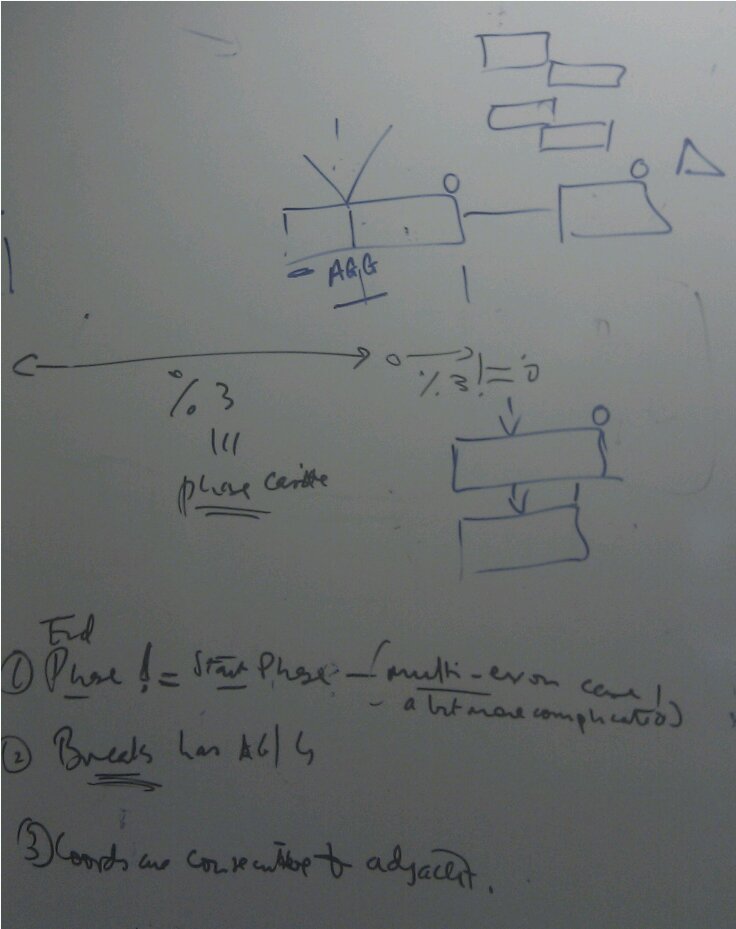 O
O
AGG
%3
O
%3 != 0
phase
O
End
① Phase != Start Phase - (multi-exon case!
- a bit more complicated)
② Breaks has AG/G
③ Coords are consecutive & adjacent.